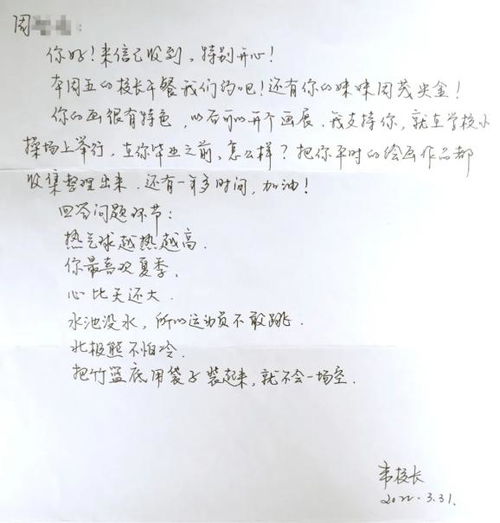 周
你好！来信已收到，特别开心！
本周五的校长午餐我们约吧！还有你的妹妹周茂尖金！
你的画很有特色，以后可以开个画展，我支持你，就在学校小
操场上举行，在你毕业之前，怎么样？把你平时的绘画作品都
收集整理出来，还有一年多时间，加油！
回答问题环节：
热气球越热越高．
你最喜欢夏季．
心比天还大．
水池没水，所以运动员不敢跳．
北极熊不怕冷．
把竹篮底用袋子装起来，就不会一场空．
韦校长
2022.3.31.